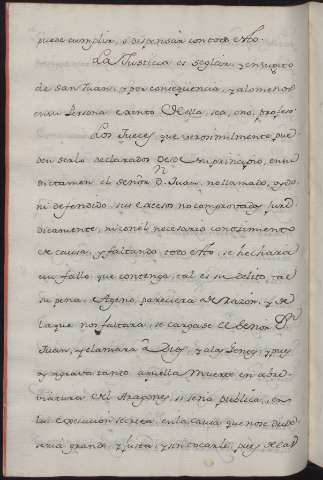 puede cumplir, o dispensar con todo esto.
La Justicia es seglar, y en sugeto
de San Juan, y por consequencia, y alomenos
en su Persona exento de ella, sea, o no, profeso.
Los Jueces, que verosimilmente pue
den serlo declarados desde su principio, en su
dictamen el Señor D. Juan, no llamado, oydo,
ni defendido, sus excesos no comprovados jurí
dicamente, ni con el necesario conocimiento
de causa, y faltando todo esto, se hechará
un fallo que contenga, tal es su delito, tal
su pena. Ageno pareciera de razon, y de
la que no faltara, se cargase el Señor Dn
Juan, y clamara a Dios, y a las Leyes, y pues
agrava tanto aquella Muerte en abre
viatura del Aragones, si sería publica, en
la execucion secreta, en la causa que no se dude
sería grande, y justa, y sin tocarle, pues